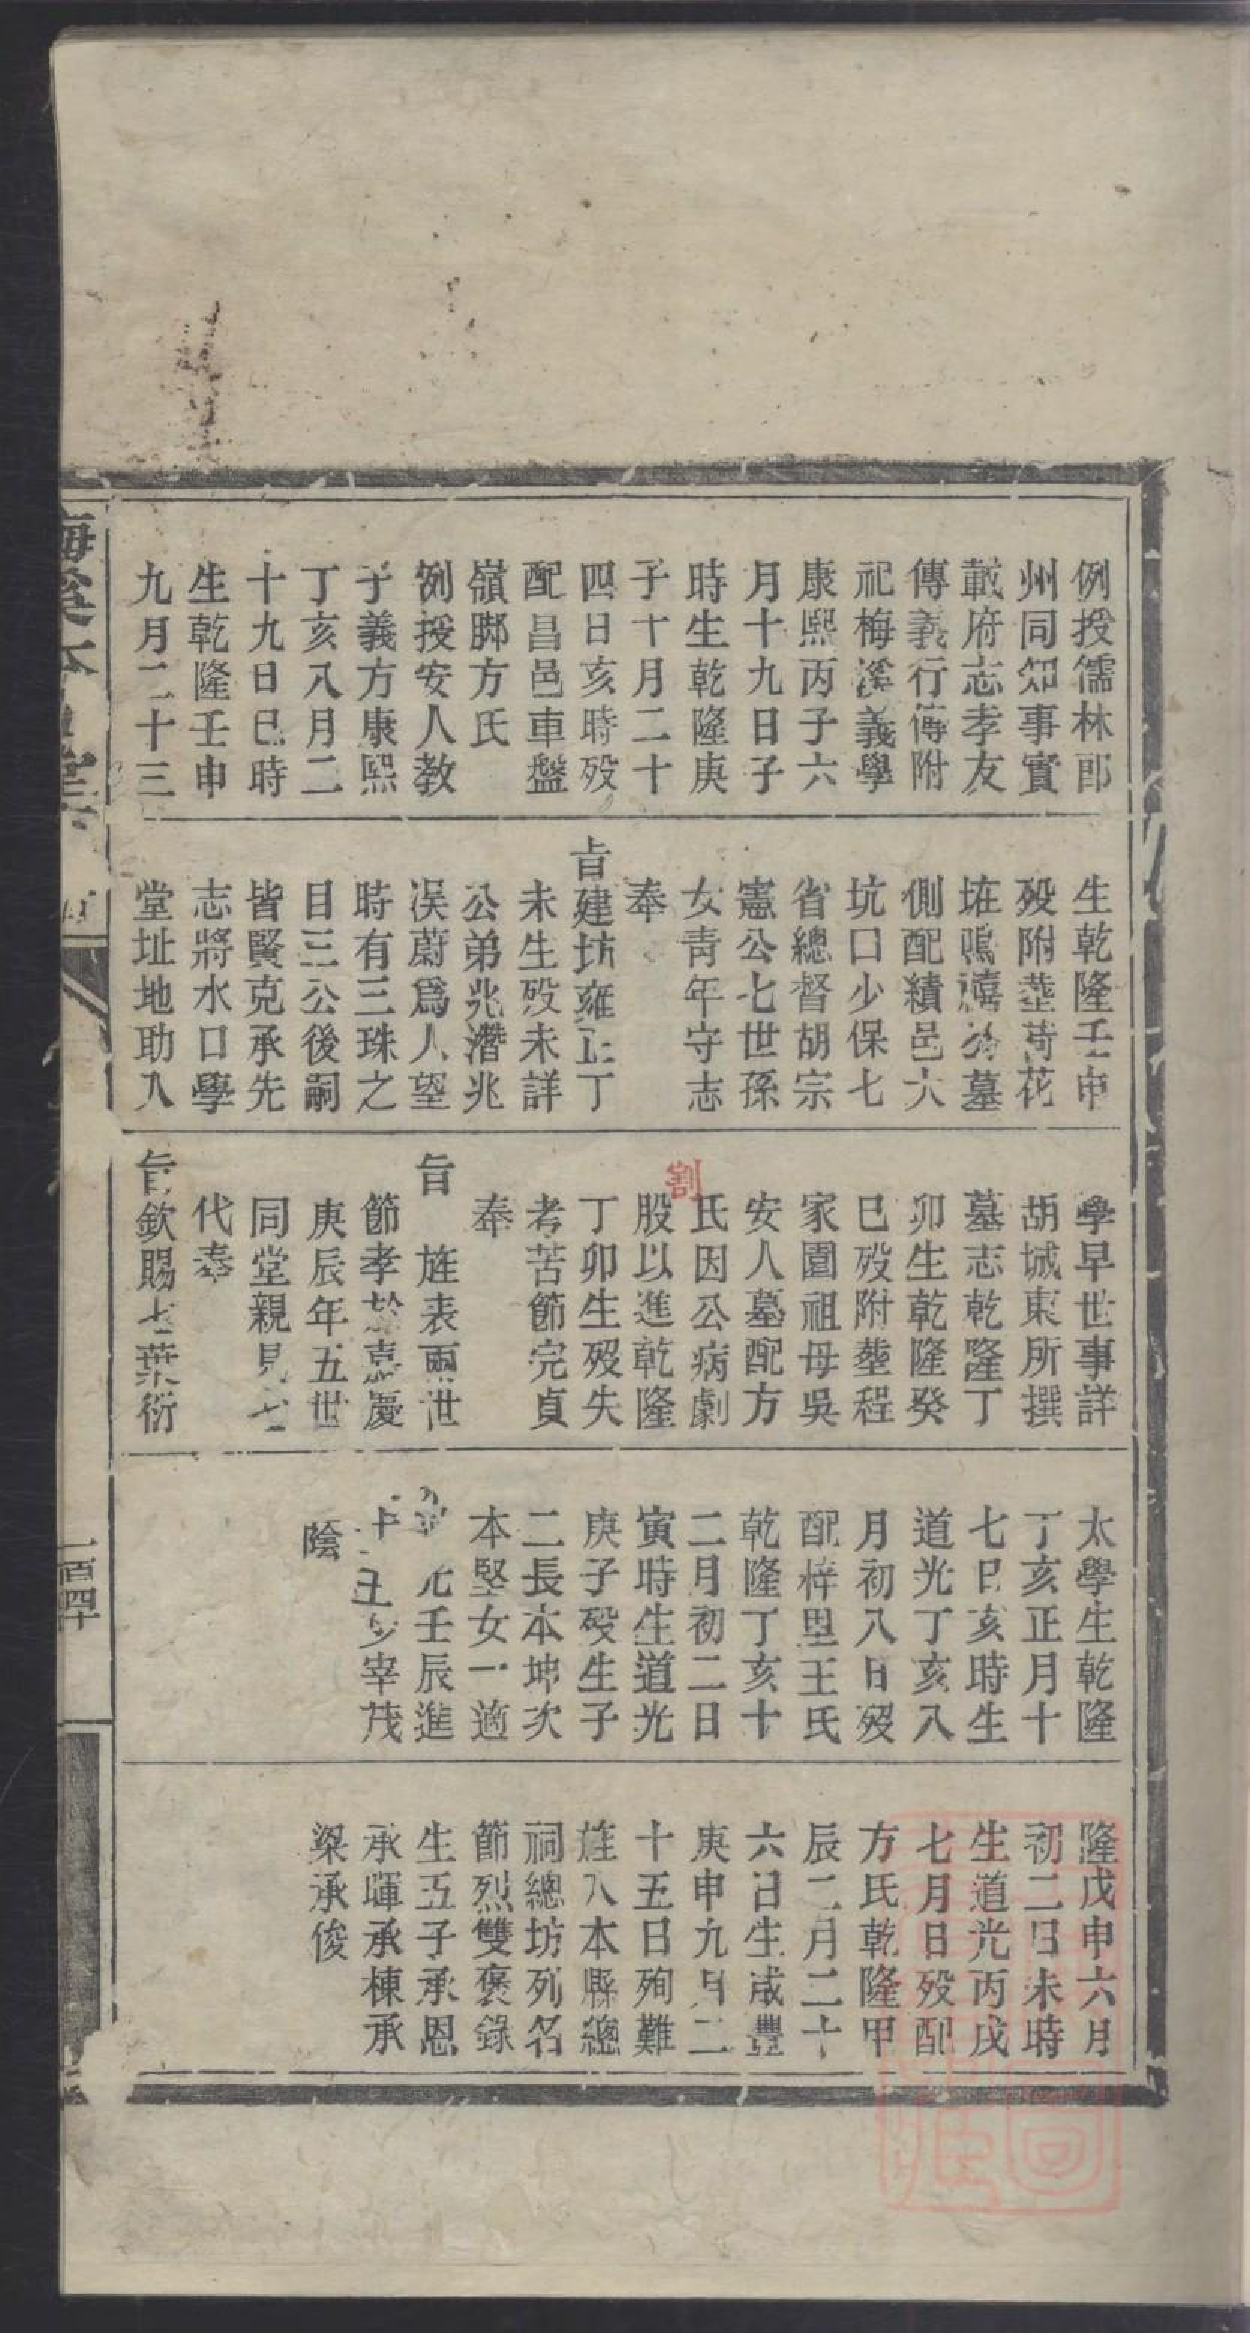 例授儒林郎
州同知事實
載府志孝友
傳義行傳附
祀梅溪義學
康熙丙子六
月十九日子
時生乾隆庚
子十月二十
四日亥時殁
配昌邑車盤
嶺脚方氏
例授安人教
子義方康熙
丁亥八月二
十九日巳時
生乾隆壬申
九月二十三
生乾隆壬申
殁附塟荷花
坵鳴禧公墓
側配績邑大
坑口少保七
省總督胡宗
憲公七世孫
女青年守志
奉
旨建坊雍正丁
未生殁未詳
公弟兆潛兆
渼蔚爲人望
時有三珠之
目三公後嗣
皆賢克承先
志將水口學
堂址地助入
學早世事詳
胡城東所撰
墓志乾隆丁
卯生乾隆癸
巳殁附塟程
家園祖母吳
安人墓配方
氏因公病劇
割
股以進乾隆
丁卯生殁失
考苦節完貞
奉
旨 旌表兩世
節孝於嘉慶
庚辰年五世
同堂親見七
代奉
旨欽賜七葉衍
太學生乾隆
丁亥正月十
七日亥時生
道光丁亥八
月初八日殁
配梓里王氏
乾隆丁亥十
二月初二日
寅時生道光
庚子殁生子
二長本坤次
本堅女一適
光壬辰進
士 宰茂
陰
隆戊申六月
初二日未時
生道光丙戌
七月日殁配
方氏乾隆甲
辰二月二十
六日生咸豐
庚申九月二
十五日殉難
旌入本縣總
祠總坊列名
節烈雙褒錄
生五子承恩
承暉承棟承
梁承俊
一百四十